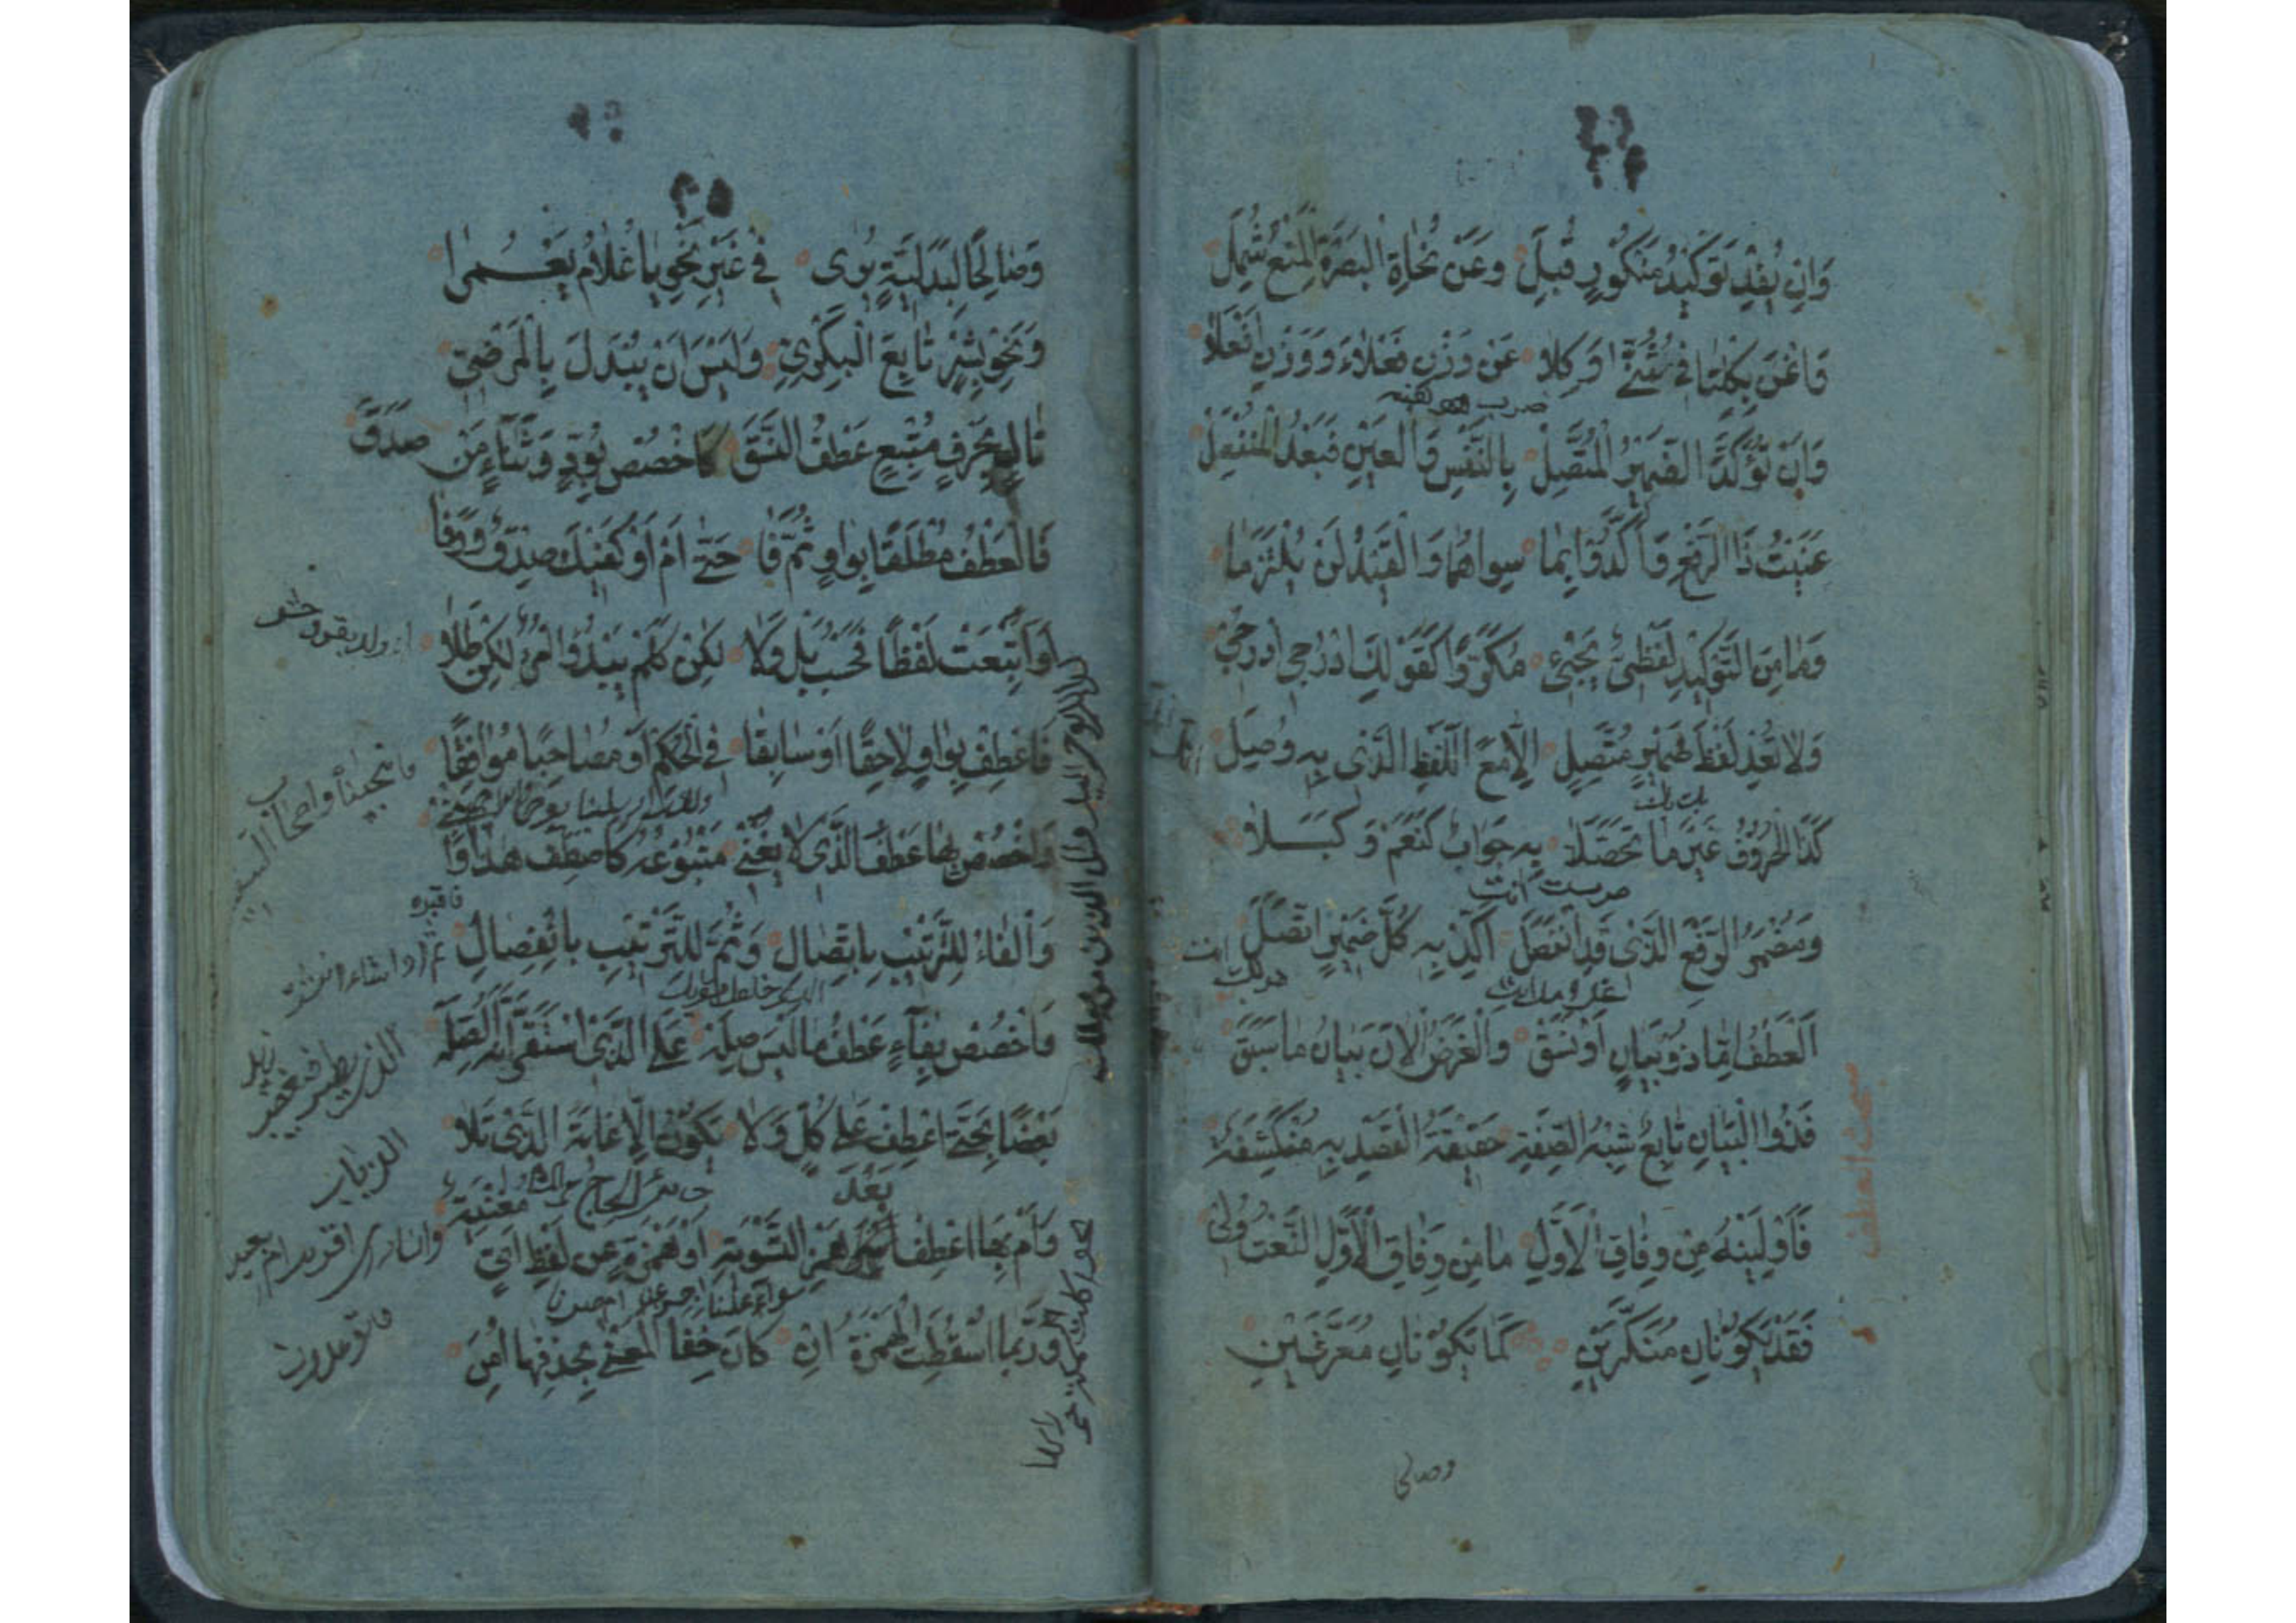 وَاِنْ يُفِدْ تَوْكِيدُ مَنْكُورٍ قُبِلَ وَعَنْ نُحَاةِ الْبَصْرَةِ الْمَنْعُ شَمِلَ
وَاغْنَ بِكِلْتَا فِي مُثَنًّى وَكِلَا عَنْ وَزْنِ فَعْلَاءَ وَوَزْنِ اَفْعَلَا
وَاِنْ تُؤَكِّدِ الضَّمِيرَ الْمُتَّصِلْ بِالنَّفْسِ وَالْعَيْنِ فَبَعْدَ الْمُنْفَصِلْ
عَنَيْتُ ذَا الرَّفْعِ وَاَكَّدُوا بِمَا سِوَاهُمَا وَالْقَيْدُ لَنْ يُلْتَزَمَا
وَمَا مِنَ التَّوْكِيدِ لَفْظِىٌّ يَجِىْءُ مُكَرَّرًا كَقَوْلِكَ ادْرُجِى ادْرُجِى
وَلَا تُعِدْ لَفْظَ ضَمِيرٍ مُتَّصِلٍ اِلَّا مَعَ اللَّفْظِ الَّذِى بِهِ وُصِلَ
كَذَا الْحُرُوفُ غَيْرَ مَا تَحَصَّلَا بِهِ جَوَابٌ كَنَعَمْ وَكَبَلَا
وَمُضْمَرُ الرَّفْعِ الَّذِى قَدِ انْفَصَلَ اَكِّدْ بِهِ كُلَّ ضَمِيرٍ اتَّصَلَ
اَلْعَطْفُ اِمَّا ذُو بَيَانٍ اَوْ نَسَقْ وَالْغَرَضُ الْاٰنَ بَيَانُ مَا سَبَقَ
فَذُو الْبَيَانِ تَابِعٌ شِبْهُ الصِّفَةِ حَقِيقَةُ الْقَصْدِ بِهِ مُنْكَشِفَةٌ
فَاَوْلِيَنْهُ مِنْ وِفَاقِ الْاَوَّلِ مَا مِنْ وِفَاقِ الْاَوَّلِ النَّعْتُ وُلِىَ
فَقَدْ يَكُونَانِ مُنَكَّرَيْنِ كَمَا يَكُونَانِ مُعَرَّفَيْنِ
مبحث العطف
وصالحا
٣٥
وَصَالِحًا لِبَدَلِيَّةٍ يُرٰى فِى غَيْرِ نَحْوِ يَا غُلَامُ يَعْمُرَا
وَنَحْوِ بِشْرٍ تَابِعَ الْبَكْرِىِّ وَلَيْسَ اَنْ يُبْدَلَ بِالْمَرْضِىِّ
تَالٍ بِحَرْفٍ مُتْبِعٍ عَطْفُ النَّسَقَ كَاخْصُصْ بِوُدٍّ وَثَنَاءٍ مَنْ صَدَقَ
فَالْعَطْفُ مُطْلَقًا بِوَاوٍ ثُمَّ فَا حَتّٰى اَمْ اَوْ كَفِيكَ صِدْقٌ وَوَفَا
وَاَتْبَعَتْ لَفْظًا فَحَسْبُ بَلْ وَلَا لٰكِنْ كَلَمْ يَبْدُ امْرُؤٌ لٰكِنْ طَلَا
فَاعْطِفْ بِوَاوٍ لَاحِقًا اَوْ سَابِقًا فِى الْحُكْمِ اَوْ مُصَاحِبًا مُوَافِقًا
وَاخْصُصْ بِهَا عَطْفَ الَّذِى لَا يُغْنِى مَتْبُوعُهُ كَاصْطَفَّ هٰذَا وَابْنِى
وَالْفَاءُ لِلتَّرْتِيْبِ بِاتِّصَالٍ وَثُمَّ لِلتَّرْتِيْبِ بِانْفِصَالٍ
وَاخْصُصْ بِفَاءٍ عَطْفَ مَا لَيْسَ صِلَهْ عَلَى الَّذِى اسْتَقَرَّ اَنَّهُ الصِّلَهْ
بَعْضًا بِحَتّٰى اعْطِفْ عَلٰى كُلٍّ وَلَا يَكُونُ اِلَّا غَايَةَ الَّذِى تَلَا
وَاَمْ بِهَا اعْطِفْ بَعْدَ هَمْزِ التَّسْوِيَةِ اَوْ هَمْزَةٍ عَنْ لَفْظِ اَىٍّ مُغْنِيَةٍ
وَرُبَّمَا اُسْقِطَتِ الْهَمْزَةُ اِنْ كَانَ خِفَا الْمَعْنٰى بِحَذْفِهَا اُمِنَ
فانجيناه واصحاب السفينة
الذباب